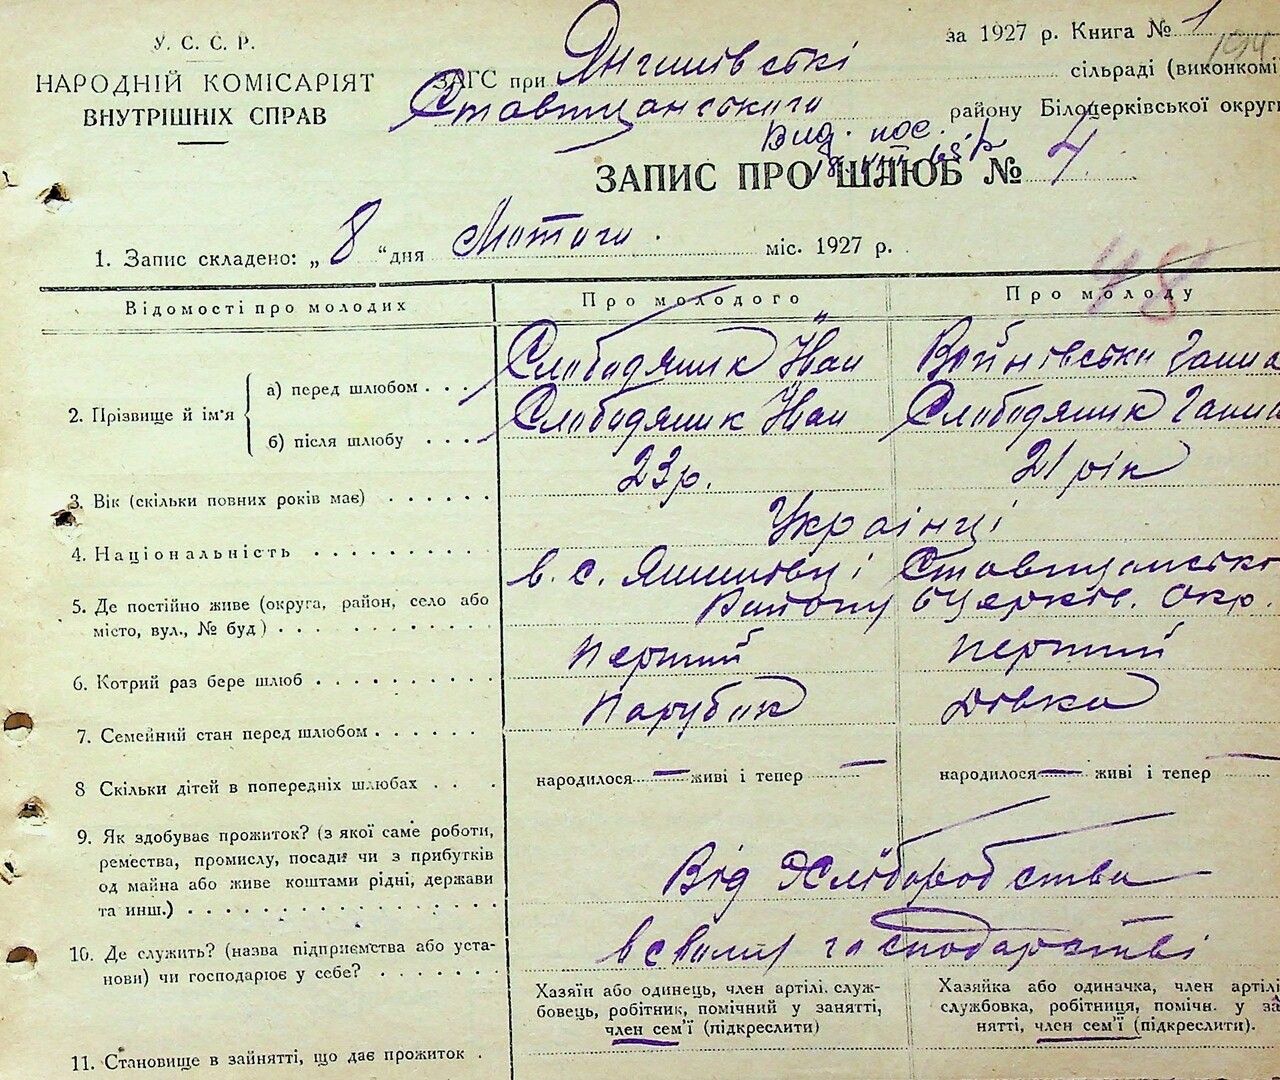 У. С. С. Р.
НАРОДНІЙ КОМІСАРІЯТ
ВНУТРІШНІХ СПРАВ
за 1927 р. Книга № 1
ЗАГС при сільраді (виконкомі
Ставищанського району Білоцерківської округи
Вид. пос.
ЗАПИС ПРО ШЛЮБ № 4
1. Запис складено: „ 8 “ дня Лютого міс. 1927 р.
48
Відомості про молодих Про молодого Про молоду
2. Прізвище й ім'я
а) перед шлюбом . . . Слободяник Йван Войновська Ганна
б) після шлюбу . . . . Слободяник Йван Слободяник Ганна
3. Вік (скільки повних років має) . . . . . . 23 р. 21 рік
4. Національність . . . . . . . . . . Українці
5. Де постійно живе (округа, район, село або в. с. Яшківці Ставищансько
місто, вул., № буд) . . . . . . . . . . Району Бцерків. Окр.
6. Котрий раз бере шлюб . . . . . . . . . . Перший Перший
7. Семейний стан перед шлюбом . . . . . . Парубок Дівка
8 Скільки дітей в попередніх шлюбах . . . . народилося — живі і тепер — народилося — живі і тепер —
9. Як здобуває прожиток? (з якої саме роботи,
ремества, промислу, посади чи з прибутків
од майна або живе коштами рідні, держави
та инш.) . . . . . . . . . . . . . . . Від Хліборобства
10. Де служить? (назва підприємства або уста-
нови) чи господарює у себе? . . . . . . . в свойму господарстві
Хазяїн або одинець, член артілі, служ-
бовець, робітник, помічний у занятті,
член сем'ї (підкреслити)
Хазяйка або одиначка, член артілі
службовка, робітниця, помічн. у за
нятті, член сем'ї (підкреслити).
11. Становище в зайнятті, що дає прожиток .